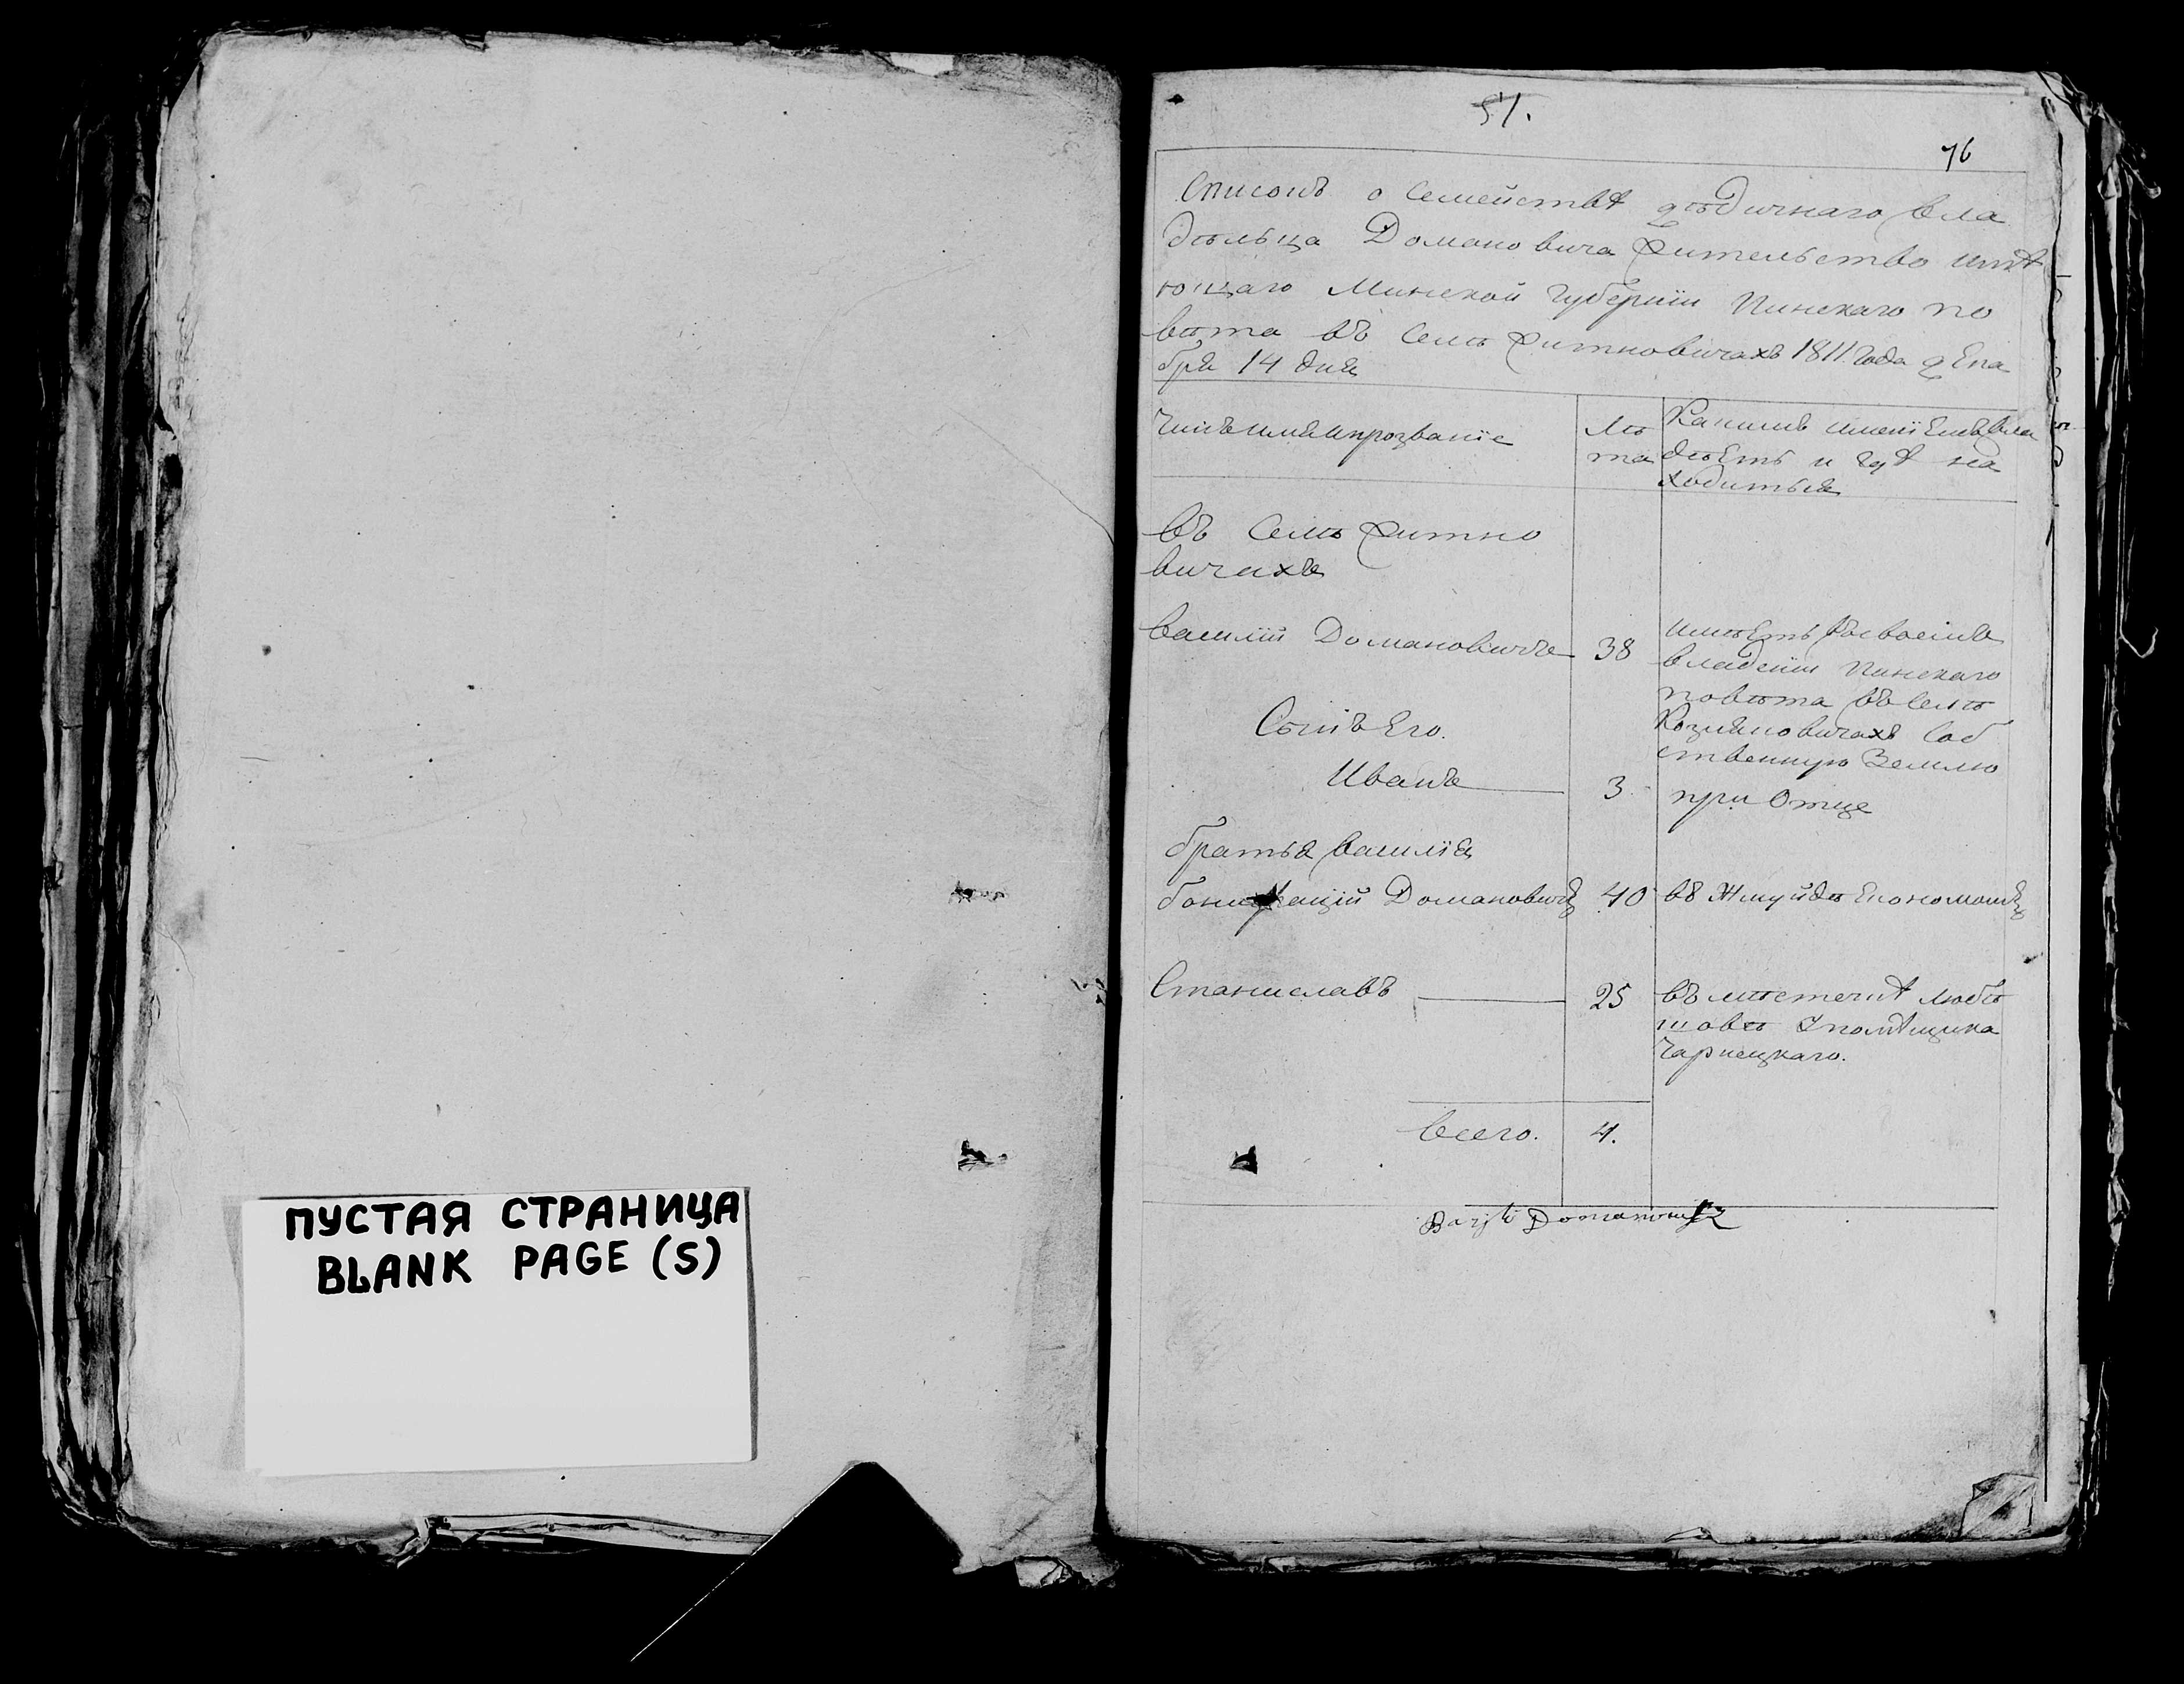 ПУСТАЯ СТРАНИЦА
BLANK PAGE (S)
51.
76
Списокъ о Семействѣ дѣдичнаго вла
дѣльца Домановича Жительство имѣ
ющаго Минской губернiи Пинскаго по
вѣта въ Селѣ Житновичахъ 1811 года декa
бря 14 дня
Чинъ имя и прозванiе
Лѣ
та
Какимъ именiемъ вла
дѣетъ и гдѣ на
ходиться
въ Селѣ Житно
вичахъ
Василiй Домановичъ 38
имѣетъ въ своемъ
владенiи Пинскаго
повѣта въ Селѣ
Козляковичахъ Соб
ственную Землю
Сынъ Его.
Иванъ 3
при Отце
братья Василiя
Бонифацiй Домановичъ 40 въ Жмуйдѣ Економомъ
Станиславъ 25
въ местечкѣ Любѣ
шовѣ У помѣщика
Чарнецкаго.
всего. 4.
Bazyli Domanowicz